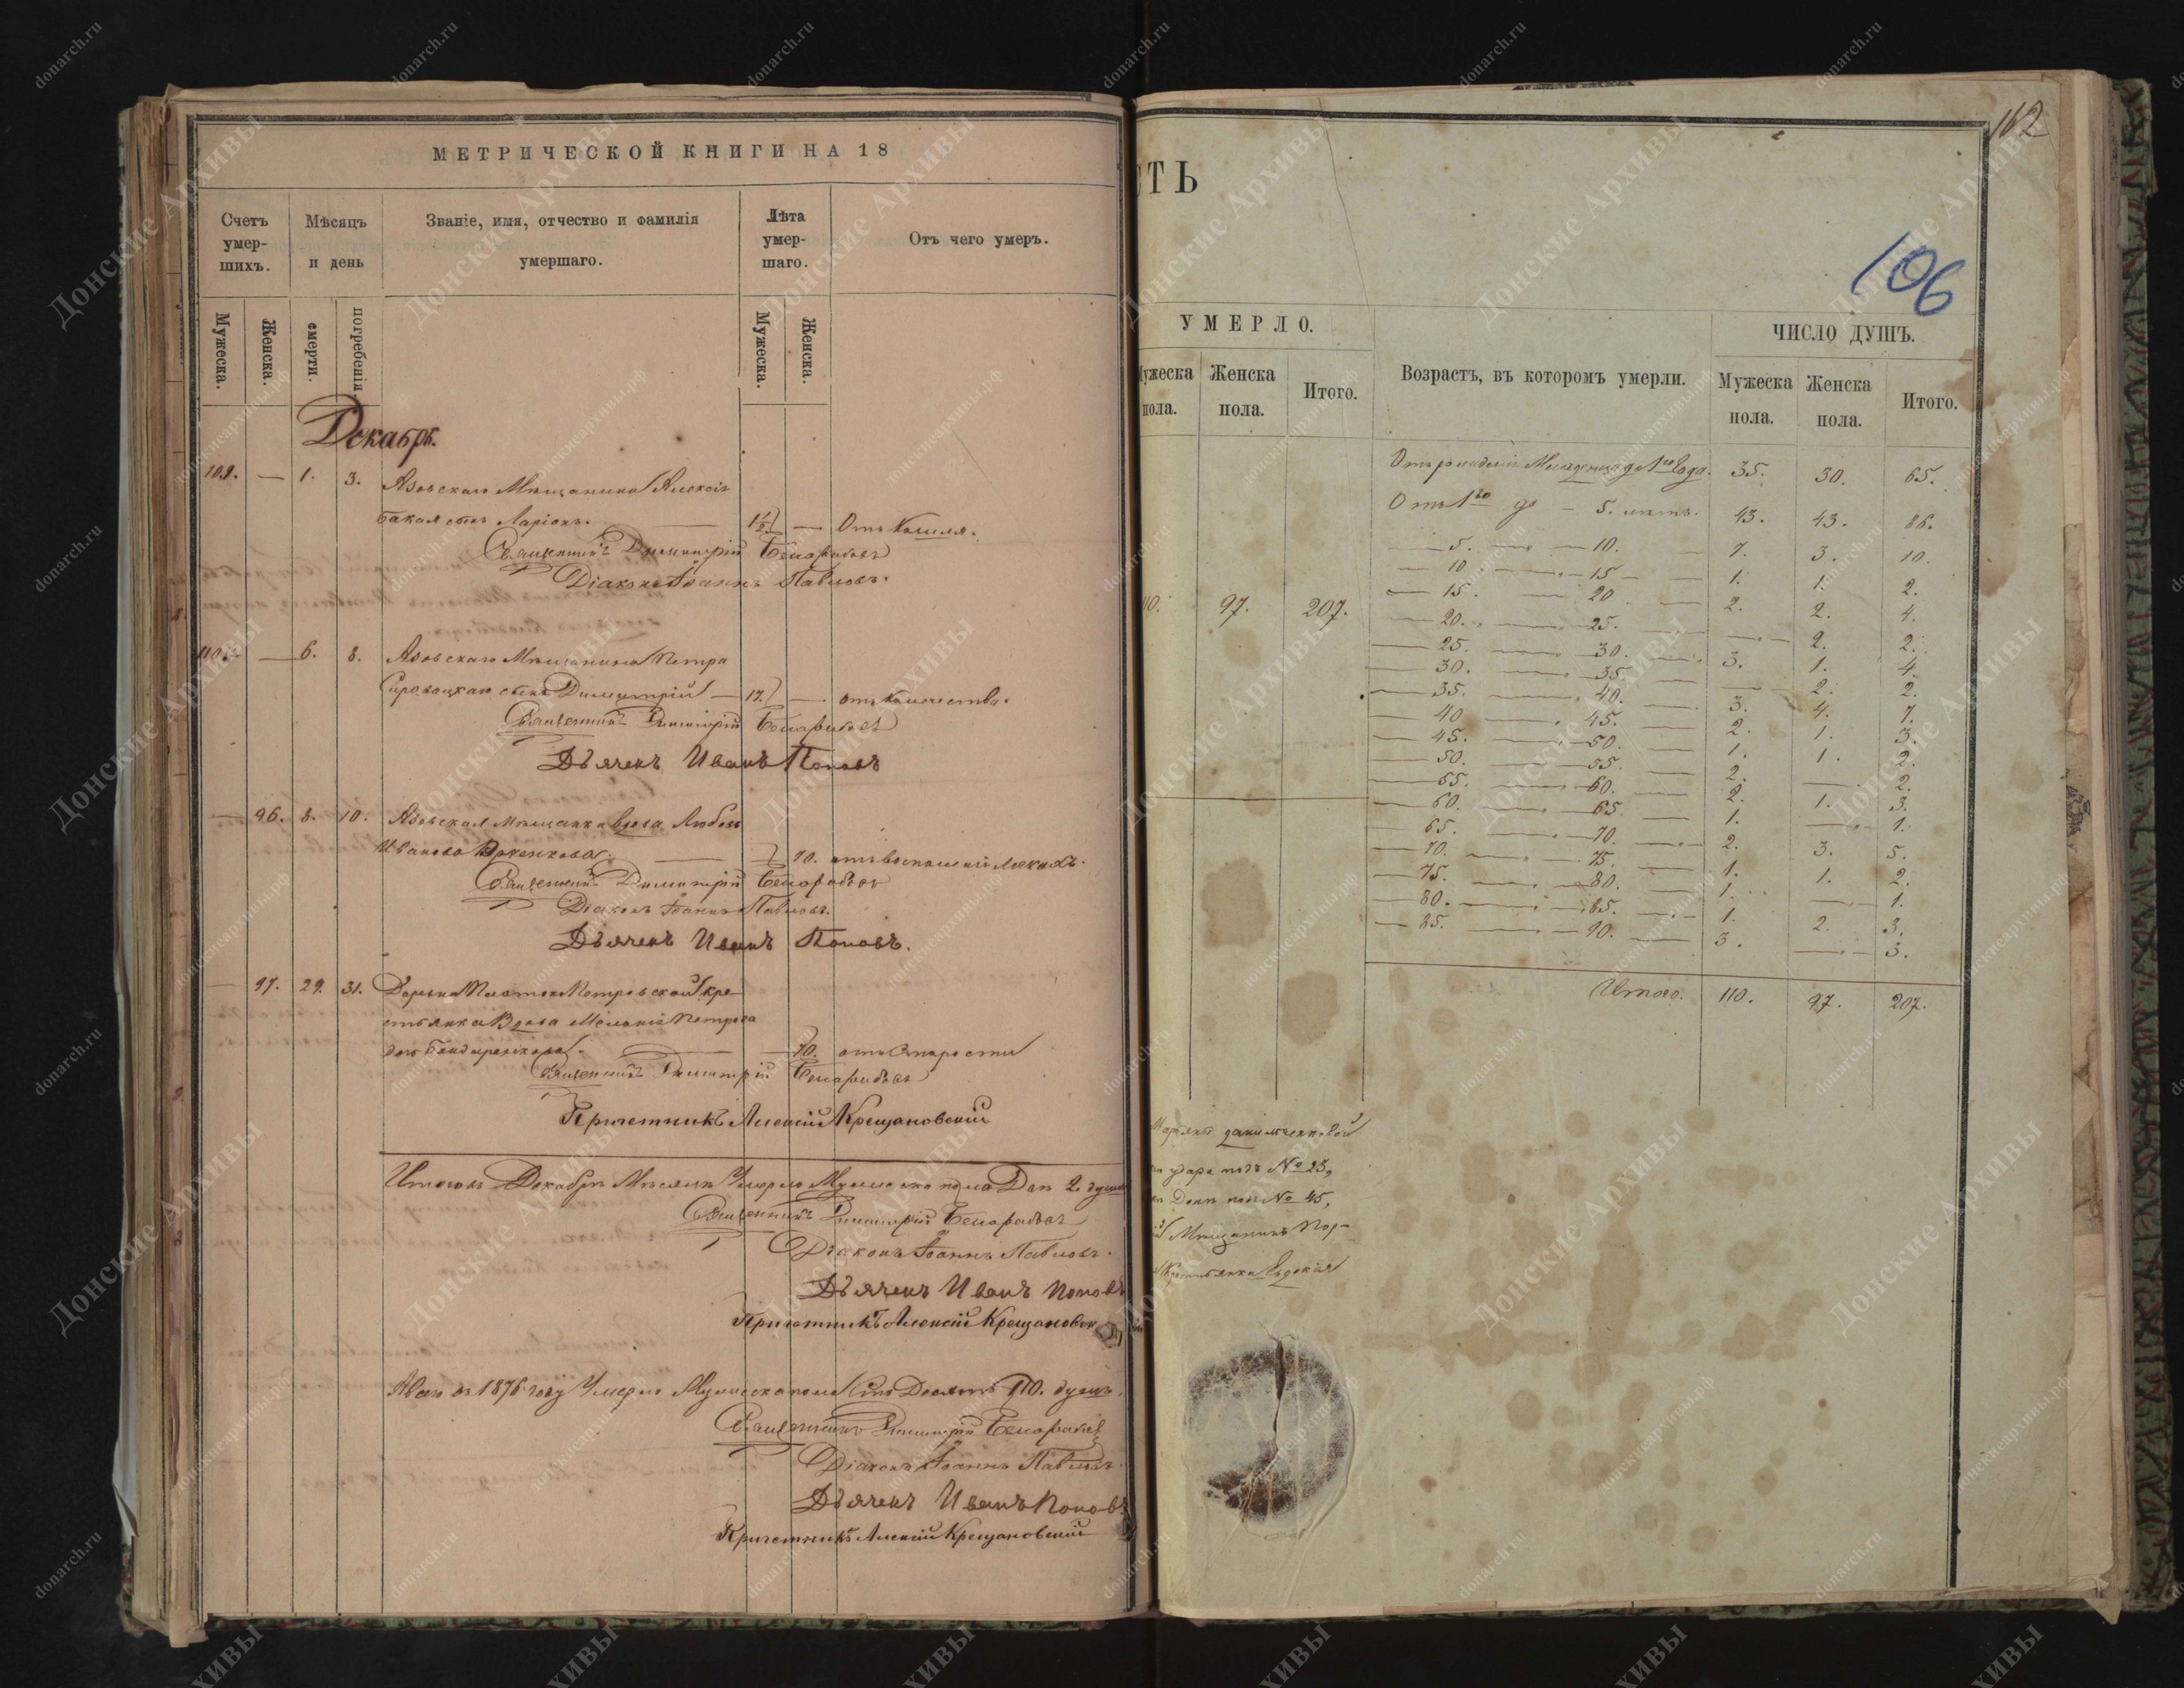 МЕТРИЧЕСКОЙ КНИГИ НА 18
Счетъ умер-шихъ.
Мѣсяцъ и день
Званіе, имя, отчество и фамилія умершаго.
Лѣта умер-шаго.
Отъ чего умеръ.
Мужеска.
Женска.
смерти.
погребенія.
Мужеска.
Женска.
Декабрь.
109. — 1. 3. Азовскаго Мѣщанина Алексія
сынъ Ларіонъ. — 1½ — Отъ Кашля.
Священникъ Димитрій
Діаконъ Іоаннъ Павловъ.
110. — 6. 8. Азовскаго Мѣщанина Петра
сынъ Димитрій — 17. —
Священникъ Димитрій
Дьячекъ Иванъ Поповъ
— 96. 8. 10. Азовская Мѣщанка вдова Любовь
Иванова — 70.
Священникъ Димитрій
Діаконъ Іоаннъ Павловъ.
Дьячекъ Иванъ Поповъ.
— 97. 29. 31. Петровской кре-
стьянка Вдова Петрова
— 70. отъ Старости
Священникъ Димитрій
Причетникъ Алексій Крещановскій
Итого въ Декабрѣ Мѣсяцѣ Умерло Мужеска пола Двѣ 2 души
Священникъ Димитрій
Діаконъ Іоаннъ Павловъ.
Дьячекъ Иванъ Поповъ
Причетникъ Алексій
А всего въ 1876 году Умерло Мужеска пола Сто Десять 110. душъ.
Священникъ Димитрій
Діаконъ Іоаннъ Павловъ.
Дьячекъ Иванъ Поповъ
Причетникъ Алексій Крещановскій
162
СТЬ
106
УМЕРЛО.
Мужеска пола.
Женска пола.
Итого.
Возрастъ, въ которомъ умерли.
ЧИСЛО ДУШЪ.
Мужеска пола.
Женска пола.
Итого.
110. 97. 207.
Отъ рожденія Младенца до 1го Года. 35. 30. 65.
Отъ 1го до — 5. лѣтъ. 43. 43. 86.
— 5. — 10. — 7. 3. 10.
— 10. — 15 — 1. 1. 2.
— 15. — 20 — 2. 2. 4.
— 20. — 25. — — 2. 2.
— 25. — 30. — 3. 1. 4.
— 30. — 35. — — 2. 2.
— 35. — 40. — 3. 4. 7.
— 40 — 45. — 2. 1. 3.
— 45. — 50. — 1. 1. 2.
— 50. — 55. — 2. — 2.
— 55. — 60. — 2. 1. 3.
— 60. — 65. — 1. — 1.
— 65. — 70. — 2. 3. 5.
— 70. — 75. — 1. 1. 2.
— 75. — 80. — 1. — 1.
— 80. — 85. — 1. 2. 3.
— 85. — 90. — 3. — 3.
Итого. 110. 97. 207.
удара подъ № 25,
подъ № 45,
Мѣщанинъ
Крестьянка Евдокія
Донские Архивы
donarch.ru
донскиеархивы.рф